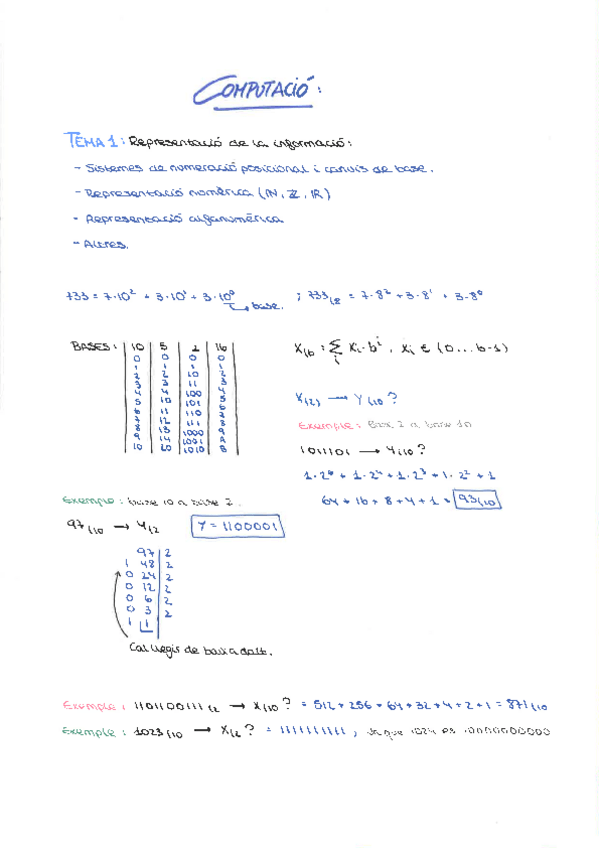 COMPUTACIÓ:
TEMA 1: Representació de la informació:
- Sistemes de numeració posicional i canvis de base.
- Representació numèrica (ℕ, ℤ, ℝ)
- Representació alfanumèrica
- Altres.
733 = 7·10² + 3·10¹ + 3·10⁰ ; 733₍₈ = 7·8² + 3·8¹ + 3·8⁰
↳ base.
BASES: | 10 | 5 | 2 | 16 |
X₍b : Σᵢ Xᵢ·bⁱ, Xᵢ ∈ (0...b-1)
X₍₂₎ → Y₍₁₀ ?
Exemple: Base 2 a base 10
1011101 → Y₍₁₀ ?
1·2⁶ + 1·2⁴ + 1·2³ + 1·2² + 1
64 + 16 + 8 + 4 + 1 = 93₍₁₀
Exemple: base 10 a base 2.
97₍₁₀ → Y₍₂ Y = 1100001
97 | 2
1 48 | 2
0 24 | 2
0 12 | 2
0 6 | 2
0 3 | 2
1 1
Cal llegir de baix a dalt.
Exemple: 1101100111₍₂ → X₍₁₀ ? = 512 + 256 + 64 + 32 + 4 + 2 + 1 = 871₍₁₀
Exemple: 1023₍₁₀ → X₍₂ ? = 1111111111, ja que 1024 és 10000000000